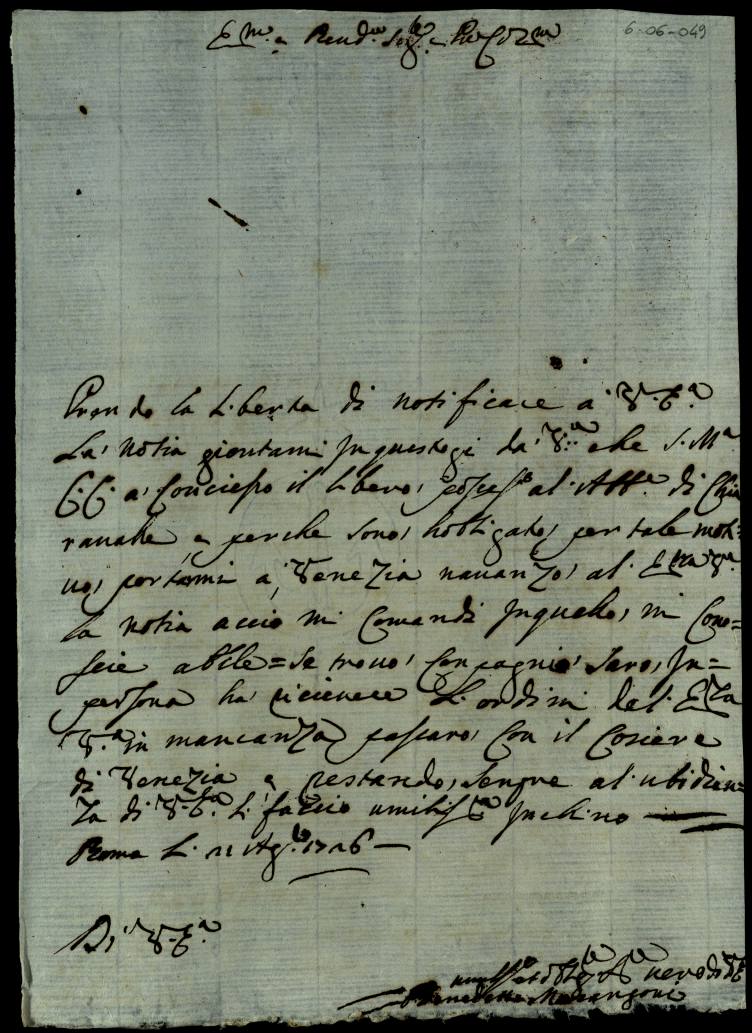 6-06-049
Em.o e Rend.mo Sig.e
Prendo la Liberta di notificare a' V. E.a
La notia giontami In questogi da' V.a che S. M.a
C. C. a' Conciesso il libero posess.o al Abb.e di Chia
ravalle e perche sono hobligato per tale moti=
uo portarmi a Venezia navanzo al E.za V.a
la notia accio mi Comandi In quelo mi Cono=
scie abile = Se trouo Conpagnio Saro In=
persona ha ricieuere L. ordini del E.za
V.a in mancanza passaro Con il Coriere
di Venezia e restando Senpre al ubidien=
za di V. E.a L. faccio umiliss.a Inchino
Roma L. 11 Ag.to 1726
Di V. E.a
Benedetto Marangoni